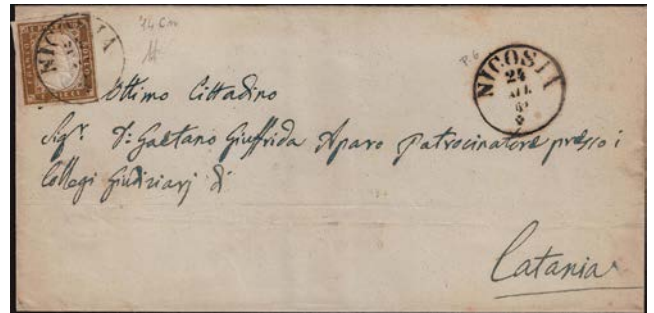 14 Cm
NICOSIA
P. 6
NICOSIA
24
Ottimo Cittadino
Sigr. Dn Gaetano Giuffrida Aparo Patrocinatore presso i
Collegi Giudiziarj di
Catania